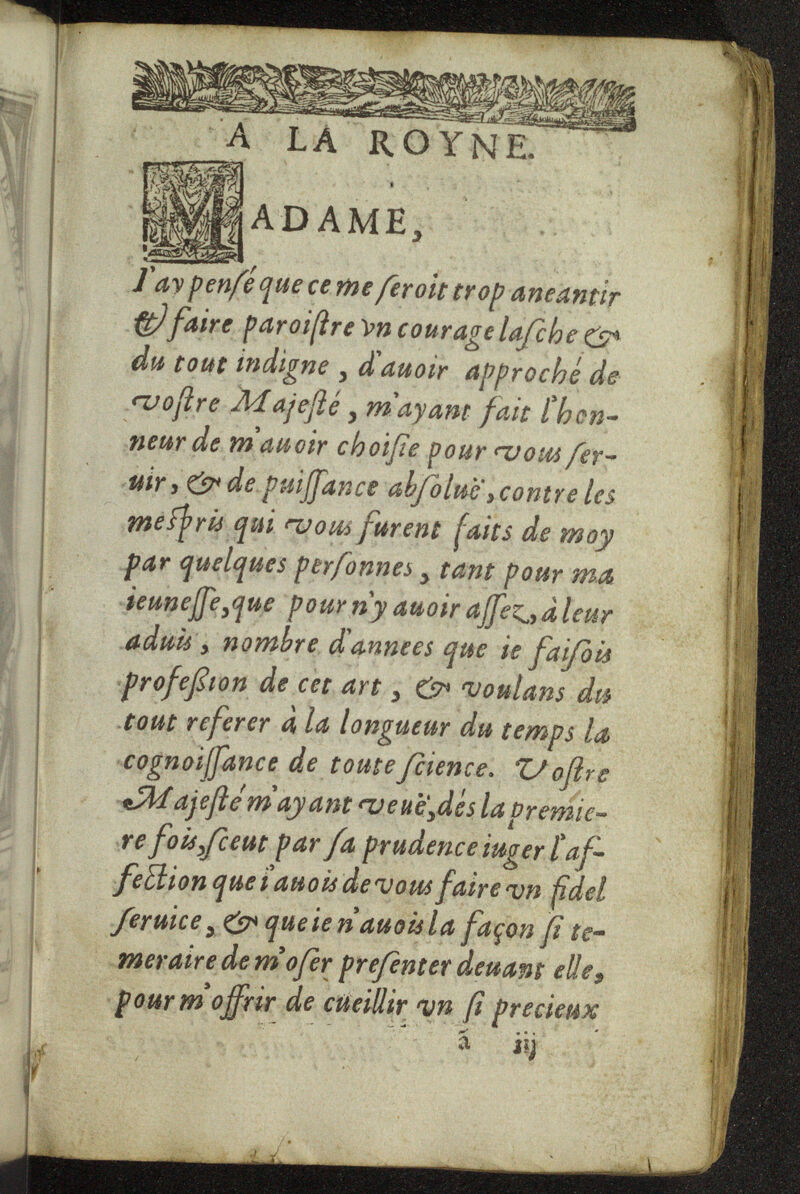 A LA ROYNE.
MADAME,
I'ay pensé que ce me seroit trop aneantir
& faire paroistre vn courage lasche &
du tout indigne, d'auoir approché de
vostre Majesté, m'ayant fait l'hon-
neur de m'auoir choisie pour vous ser-
uir, & de puissance absoluë, contre les
mespris qui vous furent faits de moy
par quelques personnes, tant pour ma
ieunesse, que pour n'y auoir assez, à leur
aduis, nombre d'annees que ie faisois
profession de cet art, & voulans du
tout referer à la longueur du temps la
cognoissance de toute science. Vostre
Majesté m'ayant veuë, dés la premie-
re fois, sceut par sa prudence iuger l'af-
fection que i'auois de vous faire vn fidel
seruice, & que ie n'auois la façon si te-
meraire de m'oser presenter deuant elle,
pour m'offrir de cüeillir vn si precieux
ã iij